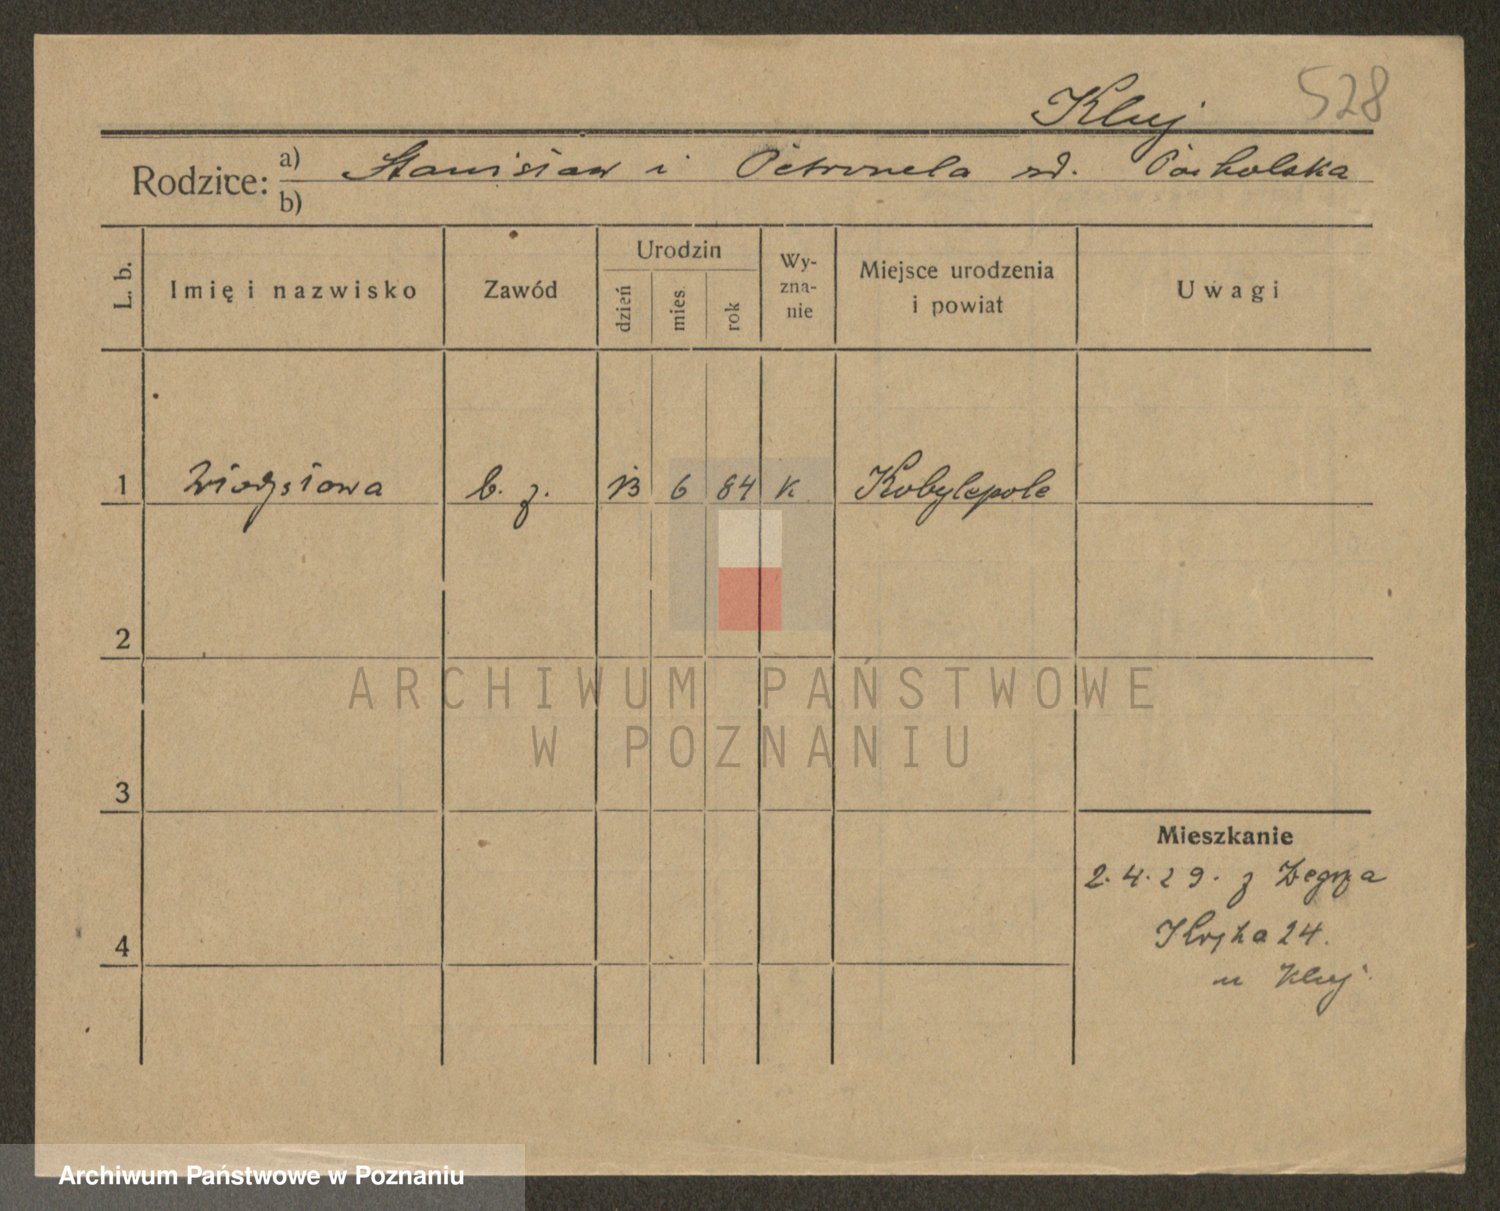 Kluj 528
Rodzice: a) Stanisław i Petronela zd.
b)
L. b. Imię i nazwisko Zawód Urodzin dzień mies. rok Wy-zna-nie Miejsce urodzenia i powiat Uwagi
1 b. z. 13 6 84 k. Kobylepole
2
3
Mieszkanie
2.4.29. z Zegrza
4
24.
u Kluj
ARCHIWUM PAŃSTWOWE
W POZNANIU
Archiwum Państwowe w Poznaniu